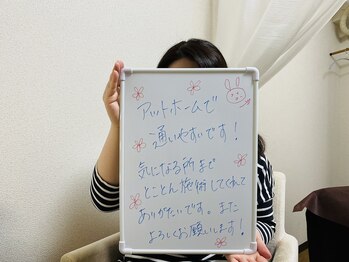 アットホームで
通いやすいです！
気になる所まで
とことん施術してくれて
ありがたいです。また
よろしくお願いします！